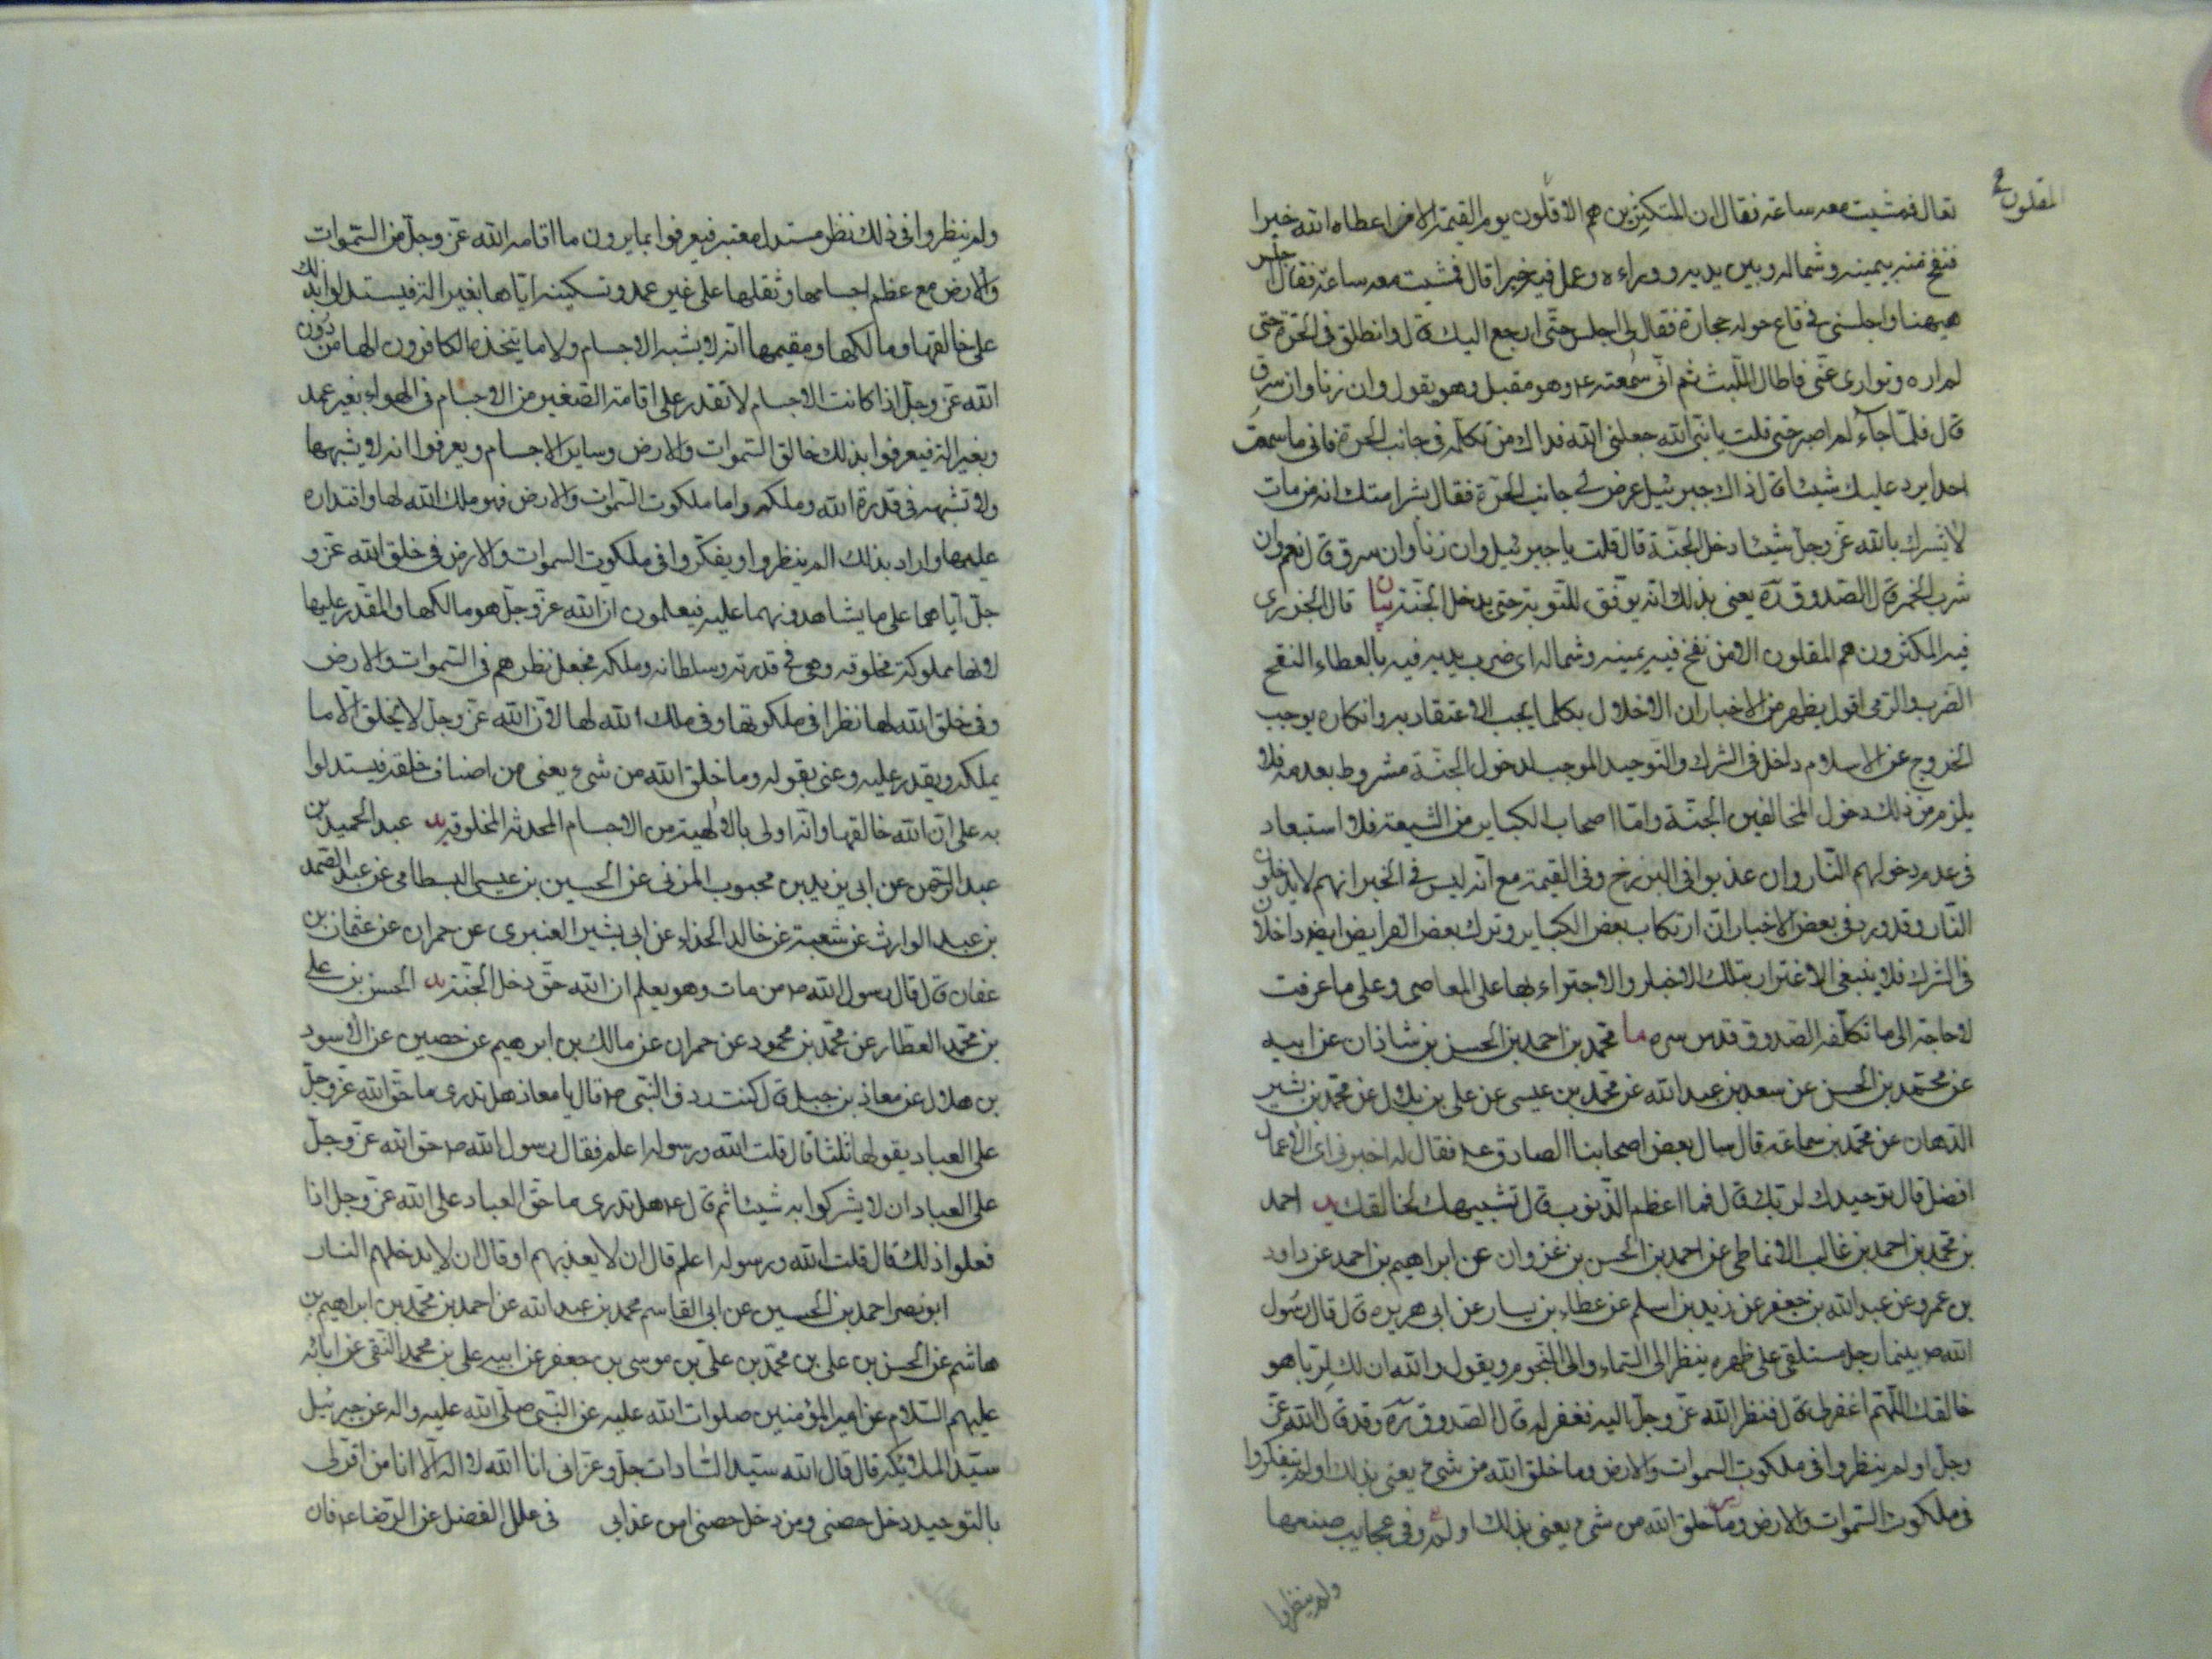 المقلون
تعال فمشيت معه ساعة فقال ان المتكثرين هم الاقلون يوم القيمة الا من اعطاه الله خيرا
فنفح منه بيمينه وشماله وبين يديه ووراءه وعمل فيه خيرا قال فمشيت معه ساعة فقال اجلس
هيهنا واجلسنى فى قاع حوله حجارة فقال لى اجلس حتى ارجع اليك قال وانطلق فى الحرة حتى
لم اره وتوارى عنى فاطال اللبث ثم انى سمعته ع وهو مقبل وهو يقول وان زنا وان سرق
قال فلما جاء لم اصبر حتى قلت يا نبى الله جعلنى الله فداك من تكلم فى جانب الحرة فانى ما سمعت
احدا يرد عليك شيئا قال ذاك جبرئيل عرض لى جانب الحرة فقال بشر امتك انه من مات
لا يشرك بالله عز وجل شيئا دخل الجنة قال قلت يا جبرئيل وان زنا وان سرق قال نعم وان
شرب الخمر قال الصدوق ره يعنى بذلك انه يوفق للتوبة حتى يدخل الجنة بيان قال الجزرى
فيه المكثرون هم المقلون الا من نفح فيه يمينه وشماله اى ضرب يديه فيه بالعطاء النفح
الضرب والرمى اقول يظهر من الاخبار ان الاخلال بكلما يجب الاعتقاد به وانكاره يوجب
الخروج عن الاسلام داخل فى الشرك والتوحيد الموجب لدخول الجنة مشروط بعدمه فلا
يلزم من ذلك دخول المخالفين الجنة واما اصحاب الكباير من الشيعة فلا استبعاد
فى عدم دخولهم النار وان عذبوا فى البرزخ وفى القيمة مع انه ليس فى الخبر انهم لا يدخلون
النار وقد ورد فى بعض الاخبار ان ارتكاب بعض الكباير وترك بعض الفرايض ايضا داخلان
فى الشرك فلا ينبغى الاغترار بتلك الاخبار والاجتراء بها على المعاصى وعلى ما عرفت
لا حاجة الى ما تكلفه الصدوق قدس سره ما محمد بن احمد بن الحسن بن شاذان عن ابيه
عن محمد بن الحسن عن سعد بن عبد الله عن محمد بن عيسى عن على بن بلال عن محمد بن بشير
الدهان عن محمد بن سماعة قال سال بعض اصحابنا الصادق ع فقال له اخبرنى اى الاعمال
افضل قال توحيدك لربك قال فما اعظم الذنوب قال تشبيهك لخالقك يد احمد
بن محمد بن احمد بن غالب الانماطى عن احمد بن الحسن بن غزوان عن ابراهيم بن احمد عن داود
بن عمرو عن عبد الله بن جعفر عن زيد بن اسلم عن عطاء بن يسار عن ابى هريره قال قال رسول
الله ص بينما رجل مستلقى على ظهره ينظر الى السماء والى النجوم ويقول والله ان لك لربا هو
خالقك اللهم اغفر لى قال فنظر الله عز وجل اليه فغفر له قال الصدوق ره وقد قال الله عز
وجل اولم ينظروا فى ملكوت السموات والارض وما خلق الله من شىء يعنى بذلك اولم يتفكروا
فى ملكوت السموات والارض وما خلق الله من شىء يعنى بذلك اولم وفى عجايب صنعها
ولم ينظروا
ولم ينظروا فى ذلك نظر مستدل معتبر فيعرفوا بما يرون ما اقامه الله عز وجل من السموات
والارض مع عظم اجسامها وثقلها على غير عمد وتسكينه اياها بغير الة فيستدلوا بذلك
على خالقها ومالكها ومقيمها انه لا يشبه الاجسام ولا ما يتخذه الكافرون الها من دون
الله عز وجل اذا كانت الاجسام لا تقدر على اقامة الصغير من الاجسام فى الهواء بغير عمد
وبغير الة فيعرفوا بذلك خالق السموات والارض وساير الاجسام ويعرفوا انه لا يشبهها
ولا تشبهه فى قدرة الله وملكه واما ملكوت السموات والارض فهو ملك الله لها واقتداره
عليها واراد بذلك الم ينظروا ويفكروا فى ملكوت السموات والارض فى خلق الله عز و
جل اياهما على ما يشاهدونهما عليه فيعلمون ان الله عز وجل هو مالكها والمقدر عليها
لانها مملوكة مخلوقه وهى فى قدرته وسلطانه وملكه فجعل نظرهم فى السموات والارض
وفى خلق الله لها نظرا فى ملكوتها وفى ملك الله لها لان الله عز وجل لا يخلق الا ما
يملكه ويقدر عليه وعنى بقوله وما خلق الله من شىء يعنى من اصناف خلقه فيستدلوا
به على ان الله خالقها وانه اولى بالالهية من الاجسام المحدثة المخلوقة يد عبد الحميد بن
عبد الرحمن عن ابى يزيد بن محبوب المزنى عن الحسين بن عيسى البسطامى عن عبد الصمد
بن عبد الوارث عن شعبة عن خالد الحذاء عن ابى بشير العنبرى عن حمران عن عثمان بن
عفان قال قال رسول الله ص من مات وهو يعلم ان الله حق دخل الجنة يد الحسن بن على
بن محمد العطار عن محمد بن محمود عن حمران عن مالك بن ابرهيم عن حصين عن الاسود
بن هلال عن معاذ بن جبل قال كنت ردف النبى ص قال يا معاذ هل تدرى ما حق الله عز وجل
على العباد يقولها ثلثا قال قلت الله ورسوله اعلم فقال رسول الله ص حق الله عز وجل
على العباد ان لا يشركوا به شيئا ثم قال ع هل تدرى ما حق العباد على الله عز وجل اذا
فعلوا ذلك قال قلت الله ورسوله اعلم قال ان لا يعذبهم او قال ان لا يدخلهم النار
ابو نصر احمد بن الحسين عن ابى القاسم محمد بن عبد الله عن احمد بن محمد بن ابراهيم بن
هاشم عن الحسن بن على بن محمد بن على بن موسى بن جعفر عن ابيه على بن محمد النقى عن ابائه
عليهم السلام عن امير المؤمنين صلوات الله عليه عن النبى صلى الله عليه واله عن جبرئيل
سيد الملائكة قال قال الله سيد السادات جل وعز انى انا الله لا اله الا انا من اقر لى
بالتوحيد دخل حصنى ومن دخل حصنى امن عذابى فى علل الفضل عن الرضا ع فان